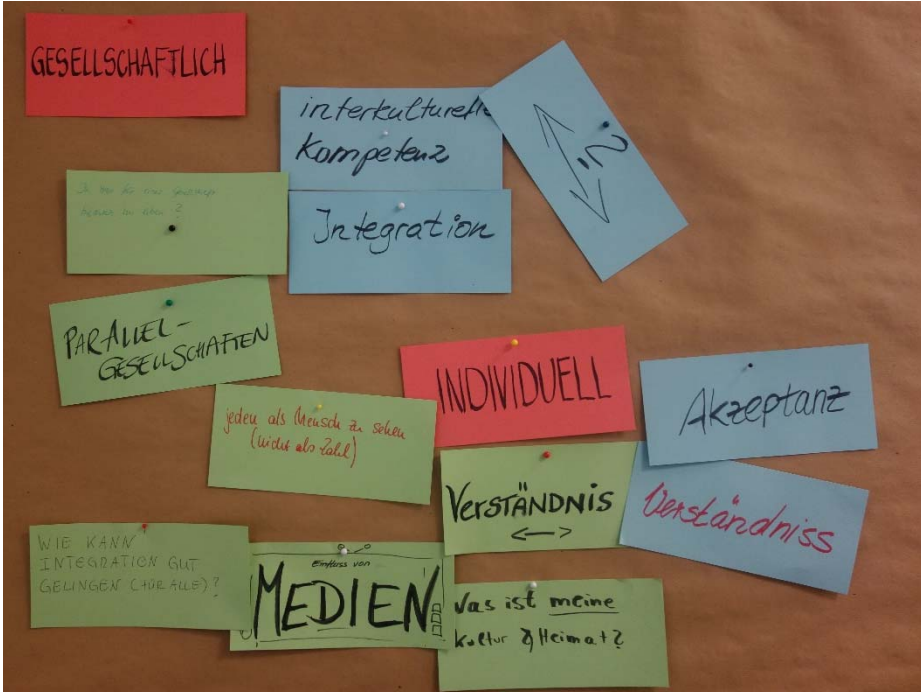 GESELLSCHAFTLICH
interkulturelle
Kompetenz
?
Integration
PARALLEL-
GESELLSCHAFTEN
INDIVIDUELL
Akzeptanz
jeden als Mensch zu sehen
(nicht als Zahl)
VERSTÄNDNIS
Verständniss
WIE KANN
INTEGRATION GUT
GELINGEN (FÜR ALLE)?
Einfluss von
MEDIEN
Was ist meine
Kultur & Heimat?